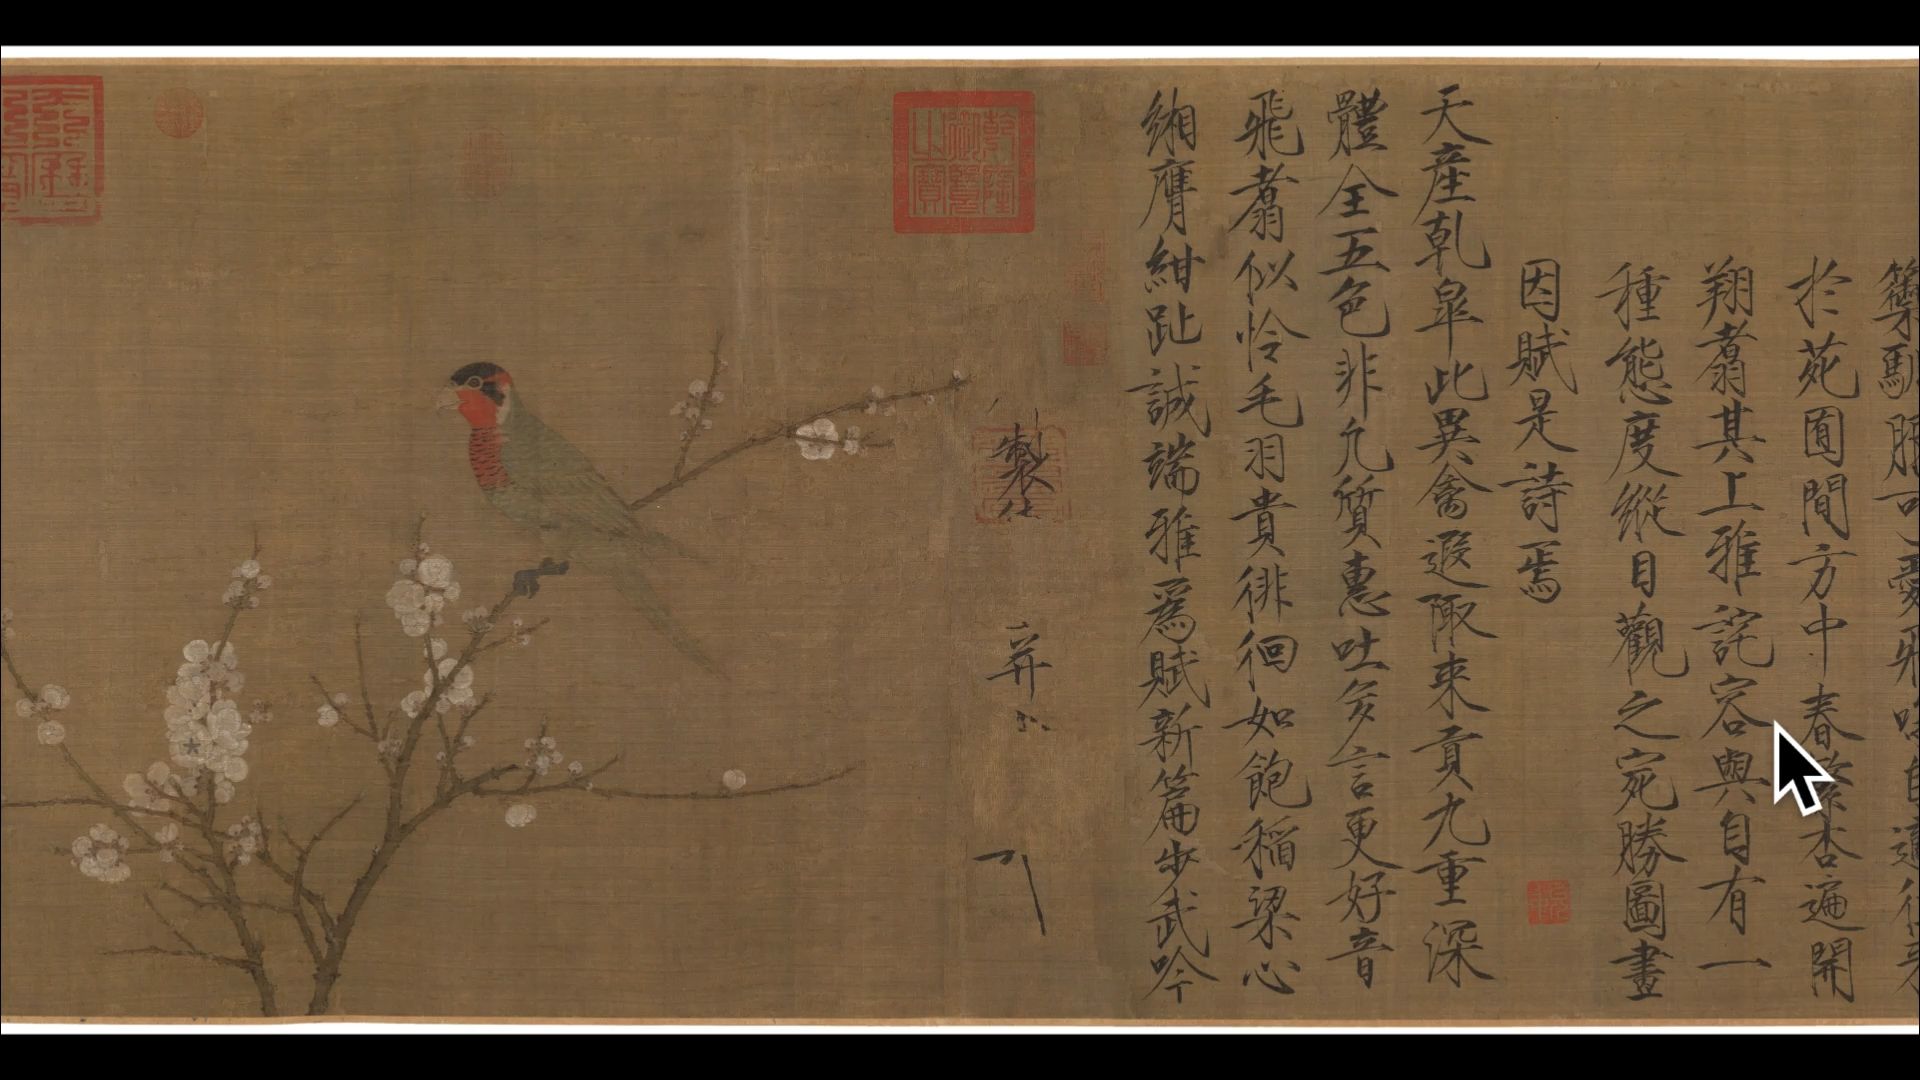 籞馴服可愛飛鳴自適往来
於苑囿間方中春繁杏遍開
翔翥其上雅詫容與自有一
種態度縱目觀之宛勝圖畫
因賦是詩焉
天產乾皐此異禽遐陬来貢九重深
體全五色非凡質惠吐多言更好音
飛翥似怜毛羽貴徘徊如飽稻粱心
緗膺紺趾誠端雅爲賦新篇步武吟
製
乾隆御覽之寶